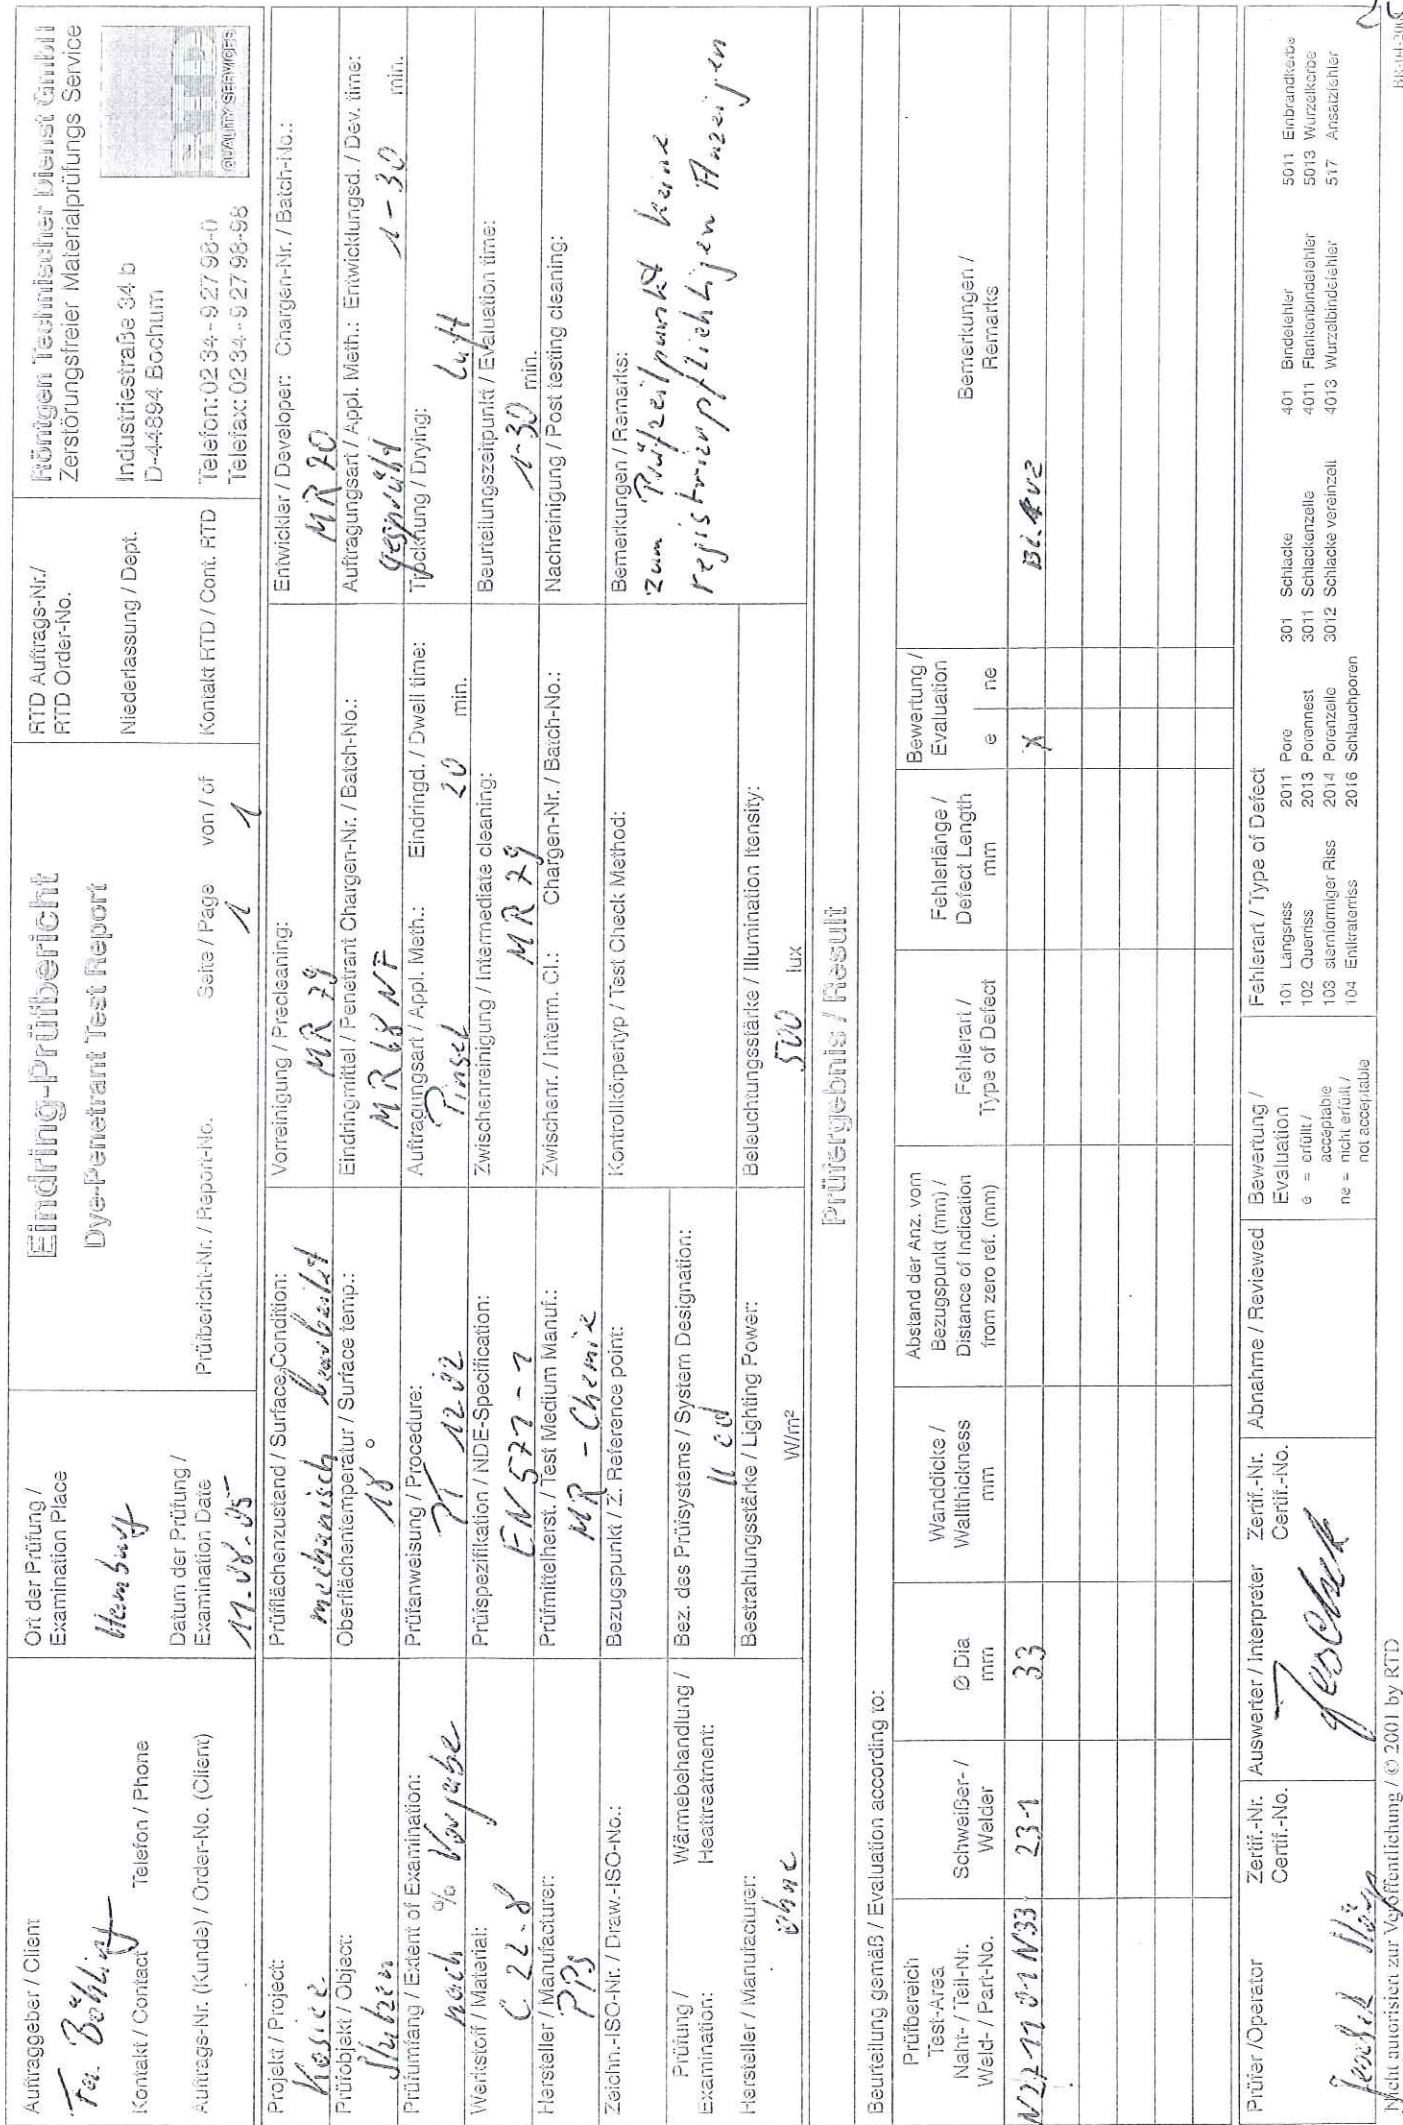 Auftraggeber / Client
Fa. Böhling
Kontakt / Contact Telefon / Phone
Auftrags-Nr. (Kunde) / Order-No. (Client)
Ort der Prüfung /
Examination Place
Hamburg
Datum der Prüfung /
Examination Date
11.08.05
Eindring-Prüfbericht
Dye-Penetrant Test Report
Prüfbericht-Nr. / Report-No. Seite / Page von / of
1 1
RTD Auftrags-Nr./
RTD Order-No.
Niederlassung / Dept.
Kontakt RTD / Cont. RTD
Röntgen Technischer Dienst GmbH
Zerstörungsfreier Materialprüfungs Service
Industriestraße 34 b
D-44894 Bochum
Telefon: 02 34 - 9 27 98-0
Telefax: 02 34 - 9 27 98-98
RTD
QUALITY SERVICES
Projekt / Project:
Kosice
Prüfobjekt / Object:
Stutzen
Prüfumfang / Extent of Examination:
nach % Vorgabe
Werkstoff / Material:
C. 22.8
Hersteller / Manufacturer:
PPS
Zeichn.-ISO-Nr. / Draw.-ISO-No.:
Prüfung / Wärmebehandlung /
Examination: Heattreatment:
Hersteller / Manufacturer:
ohne
Prüfflächenzustand / Surface Condition:
mechanisch bearbeitet
Oberflächentemperatur / Surface temp.:
18 °
Prüfanweisung / Procedure:
PT 12.02
Prüfspezifikation / NDE-Specification:
EN 571-1
Prüfmittelherst. / Test Medium Manuf.:
MR - Chemie
Bezugspunkt / Z. Reference point:
Bez. des Prüfsystems / System Designation:
II cd
Bestrahlungsstärke / Lighting Power:
W/m²
Vorreinigung / Precleaning:
MR 79
Eindringmittel / Penetrant Chargen-Nr. / Batch-No.:
MR 68 NF
Auftragungsart / Appl. Meth.: Eindringd. / Dwell time:
Pinsel 20 min.
Zwischenreinigung / Intermediate cleaning:
MR 79
Zwischenr. / Interm. Cl.: Chargen-Nr. / Batch-No.:
Kontrollkörpertyp / Test Check Method:
Beleuchtungsstärke / Illumination Itensity:
500 lux
Entwickler / Developer: Chargen-Nr. / Batch-No.:
MR 70
Auftragungsart / Appl. Meth.: Entwicklungsd. / Dev. time:
gesprüht 1-30 min.
Trocknung / Drying:
Luft
Beurteilungszeitpunkt / Evaluation time:
1-30 min.
Nachreinigung / Post testing cleaning:
Bemerkungen / Remarks:
Zum Prüfzeitpunkt keine
registrierpflichtigen Anzeigen
Prüfergebnis / Result
Beurteilung gemäß / Evaluation according to:
Prüfbereich
Test-Area
Naht- / Teil-Nr.
Weld- / Part-No.
Schweißer- /
Welder
Ø Dia
mm
Wanddicke /
Wallthickness
mm
Abstand der Anz. vom
Bezugspunkt (mm) /
Distance of Indication
from zero ref. (mm)
Fehlerart /
Type of Defect
Fehlerlänge /
Defect Length
mm
Bewertung /
Evaluation
e ne
Bemerkungen /
Remarks
N22-11 01 N33 23-1 33 X
Prüfer /Operator Zertif.-Nr.
Certif.-No.
Auswerter / Interpreter Zertif.-Nr.
Certif.-No.
Jeschek
Abnahme / Reviewed
Bewertung /
Evaluation
e = erfüllt /
acceptable
ne = nicht erfüllt /
not acceptable
Fehlerart / Type of Defect
101 Längsriss 2011 Pore 301 Schlacke 401 Bindefehler 5011 Einbrandkerbe
102 Querriss 2013 Porennest 3011 Schlackenzeile 4011 Flankenbindefehler 5013 Wurzelkerbe
103 sternförmiger Riss 2014 Porenzeile 3012 Schlacke vereinzelt 4013 Wurzelbindefehler 517 Ansatzfehler
104 Endkraterriss 2016 Schlauchporen
Nicht autorisiert zur Veröffentlichung / © 2001 by RTD